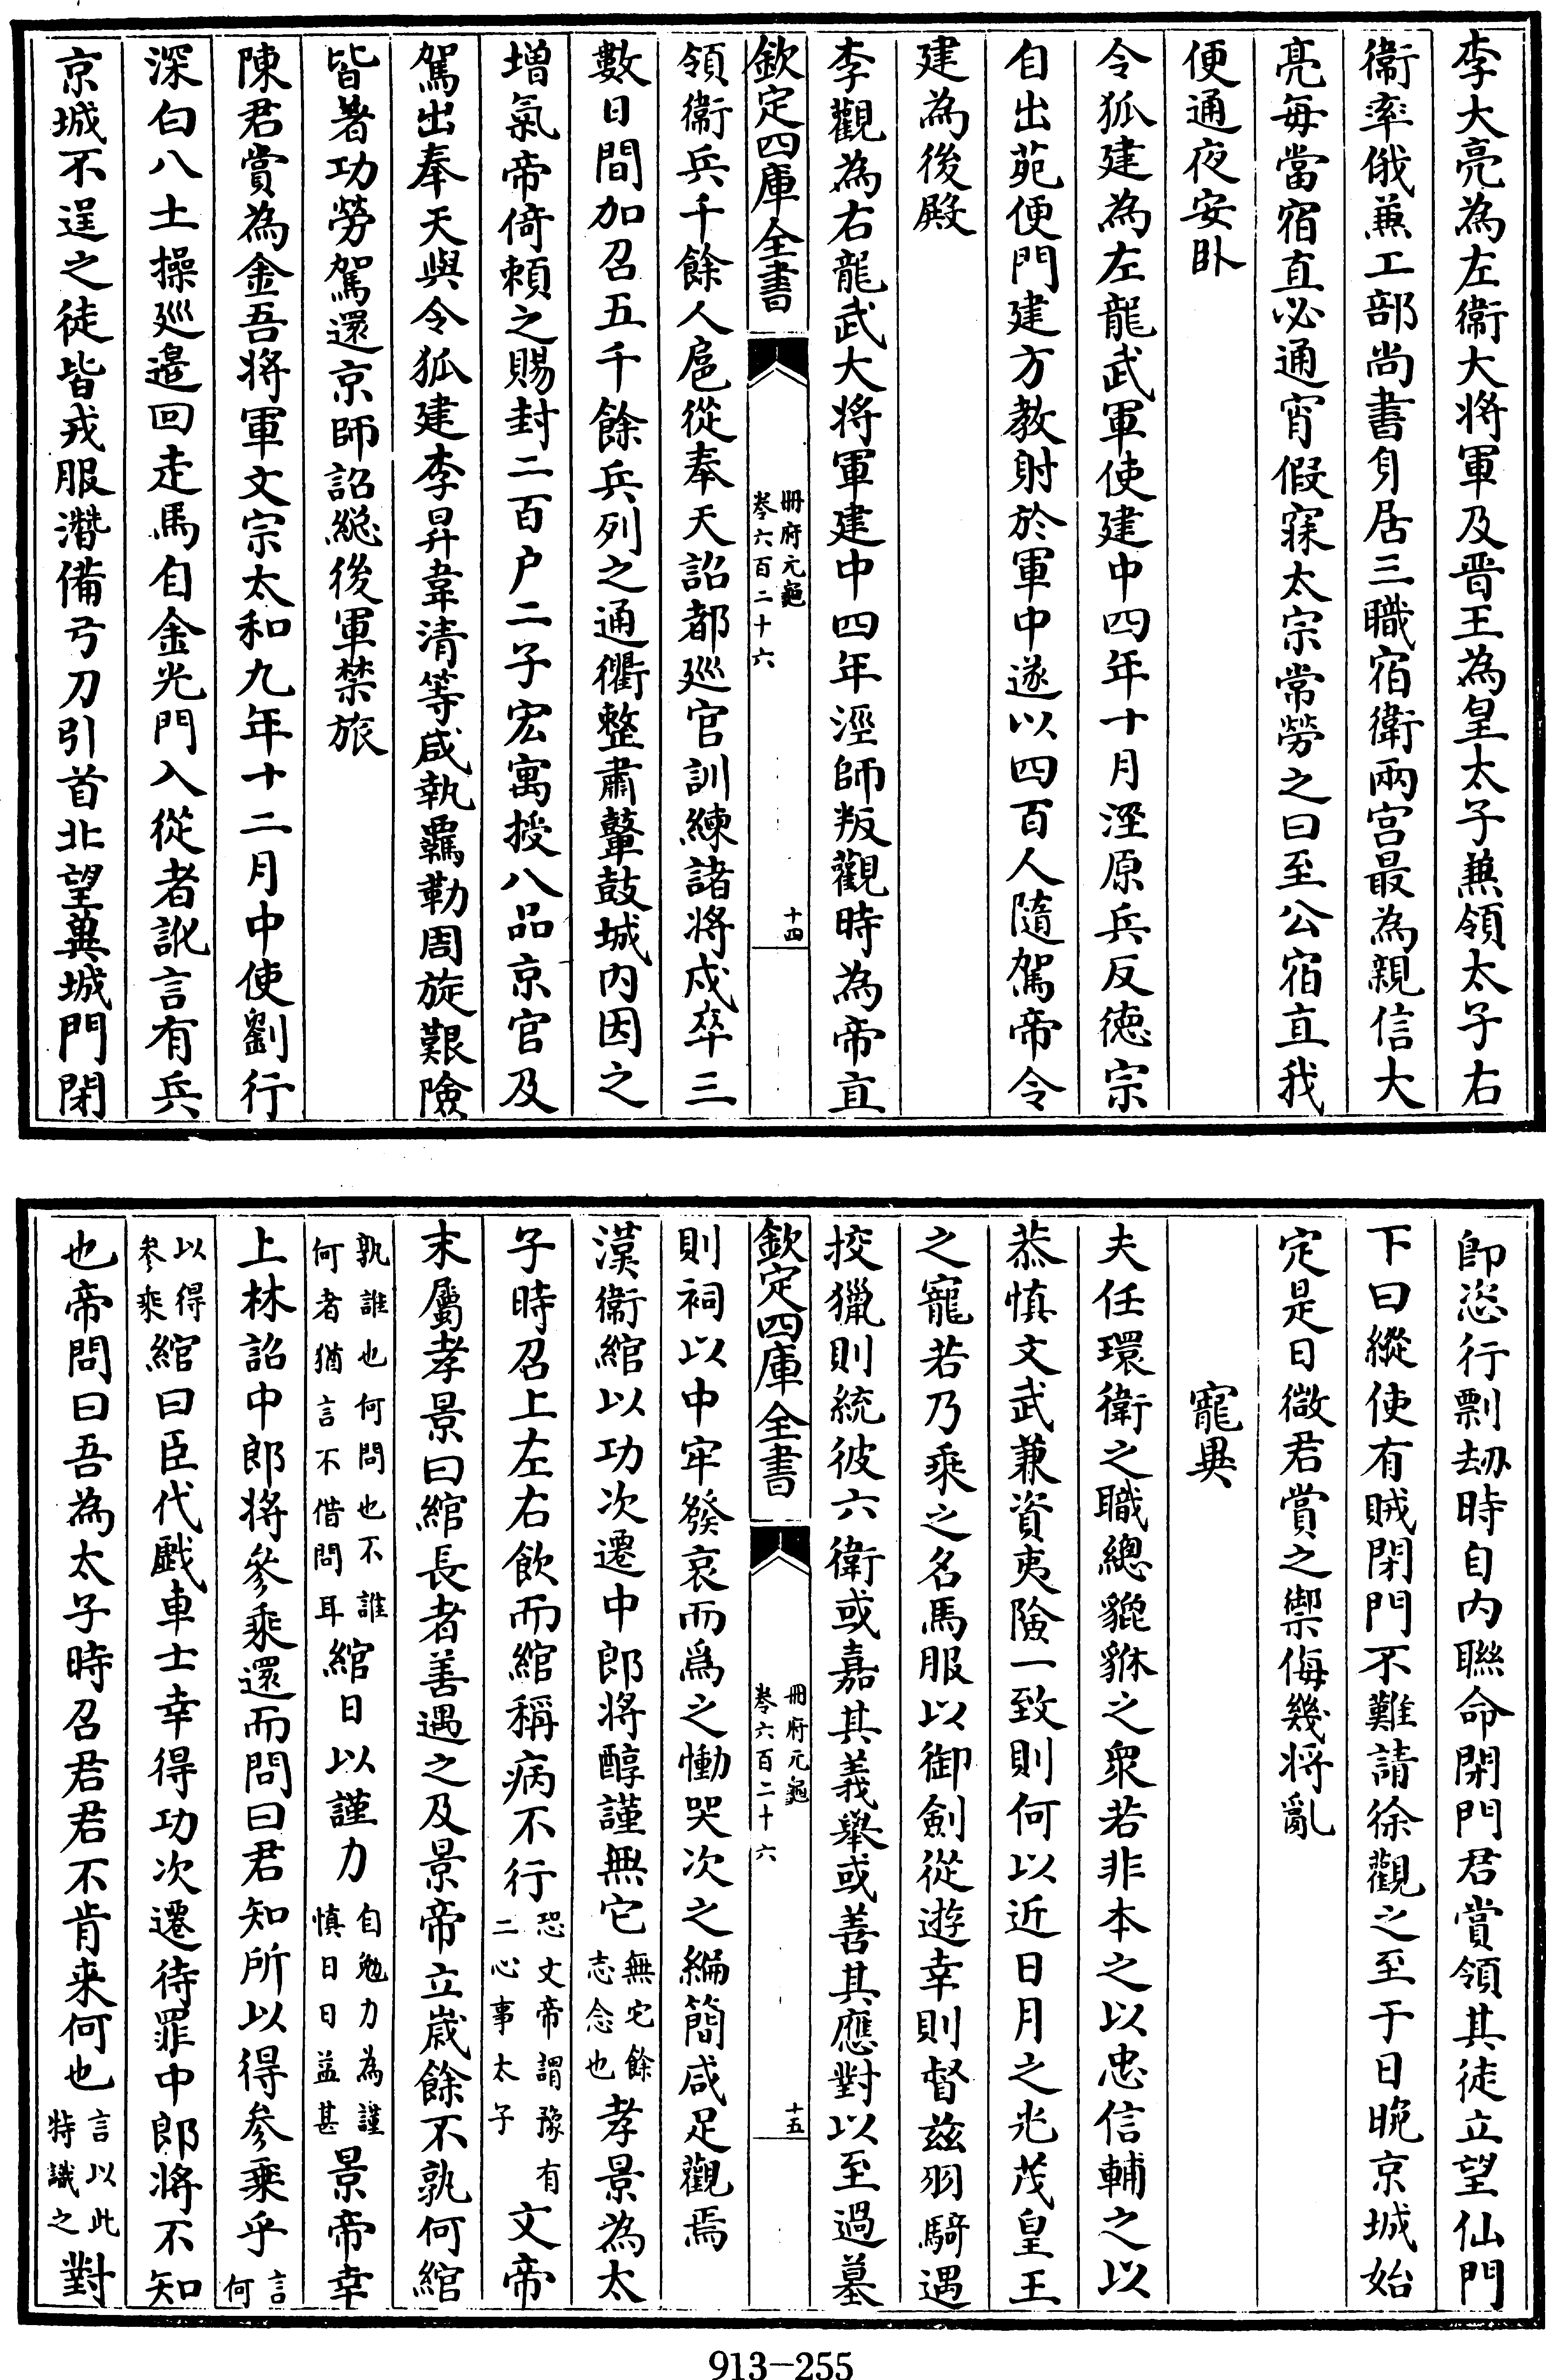 李大亮為左衛大将軍及晋王為皇太子兼領太子右
衛率俄兼工部尚書身居三職宿衛兩宫最為親信大
亮每當宿直必通宵假寐太宗常勞之曰至公宿直我
便通夜安卧
令狐建為左龍武軍使建中四年十月涇原兵反徳宗
自出苑便門建方教射於軍中遂以四百人隨駕帝令
建為後殿
李觀為右龍武大将軍建中四年涇師叛觀時為帝直
欽定四庫全書
冊府元龜
卷六百二十六
十四
領衛兵千餘人扈從奉天詔都廵官訓練諸将戍卒三
數日間加召五千餘兵列之通衢整肅鼙鼓城内因之
增氣帝倚頼之賜封二百户二子宏寓授八品京官及
駕出奉天與令狐建李昇韋清等咸執羈勒周旋艱險
皆著功勞駕還京師詔緫後軍禁旅
陳君賞為金吾将軍文宗太和九年十二月中使劉行
深白八土操廵邉回走馬自金光門入從者訛言有兵
京城不逞之徒皆戎服濳備弓刀引首北望冀城門閉
卽恣行剽刼時自内聯命閉門君賞領其徒立望仙門
下曰縱使有賊閉門不難請徐觀之至于日晚京城始
定是日微君賞之禦侮幾将亂
寵異
夫任環衛之職總貔貅之衆若非本之以忠信輔之以
恭慎文武兼資夷險一致則何以近日月之光茂皇王
之寵若乃乘之名馬服以御劍從遊幸則督兹羽騎遇
挍獵則統彼六衛或嘉其義舉或善其應對以至過墓
欽定四庫全書
冊府元龜
卷六百二十六
十五
則祠以中牢發哀而為之慟哭次之編簡咸足觀焉
漢衛綰以功次遷中郎將醇謹無它無它餘志念也孝景為太
子時召上左右飲而綰稱病不行恐文帝謂豫有二心事太子文帝
末屬孝景曰綰長者善遇之及景帝立歲餘不孰何綰
孰誰也何問也不誰何者猶言不借問耳綰日以謹力自勉力為謹慎日日益甚景帝幸
上林詔中郎将參乘還而問曰君知所以得參乗乎言何
以得參乘綰曰臣代戱車士幸得功次遷待罪中郎將不知
也帝問曰吾為太子時召君君不肯来何也言以此特識之對
913-255